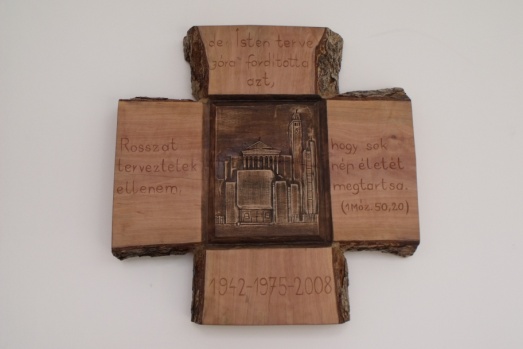 de Isten terve
"jóra" fordította
azt,
Rosszat
terveztetek
ellenem,
hogy sok
nép életét
megtartsa.
(1Móz. 50,20)
1942-1975-2008